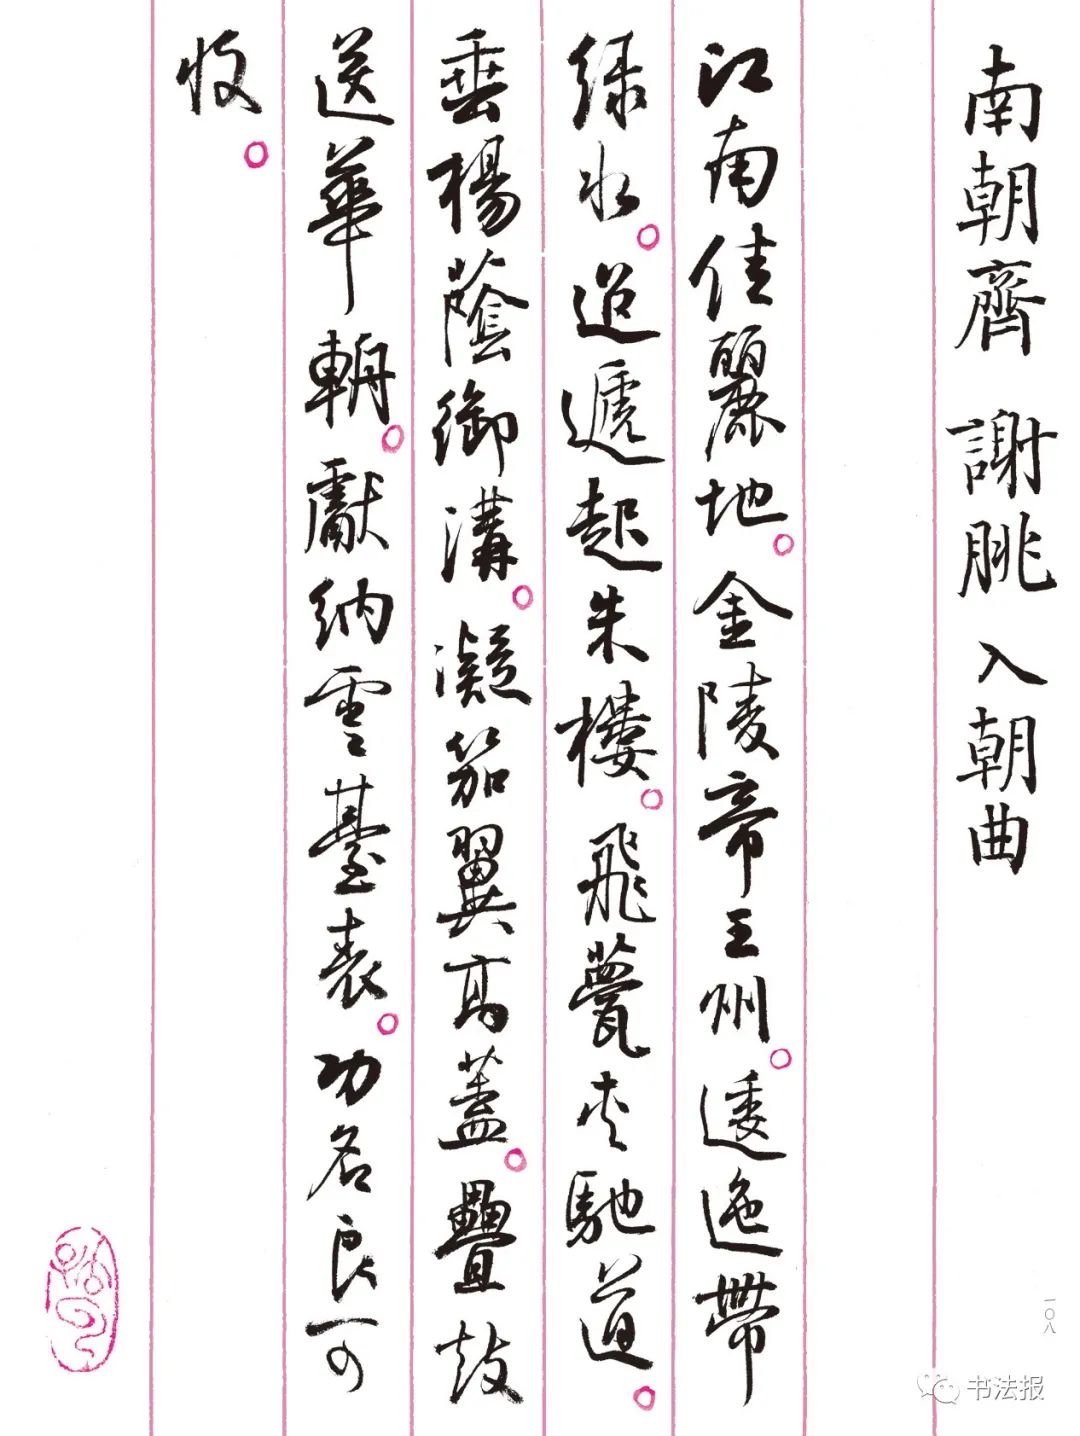 南朝齊 謝朓 入朝曲
江南佳麗地。金陵帝王州。逶迤帶
綠水。迢遞起朱樓。飛甍夾馳道。
垂楊蔭御溝。凝笳翼高蓋。疊鼓
送華輈。獻納雲臺表。功名良可
收。
一〇八
书法报